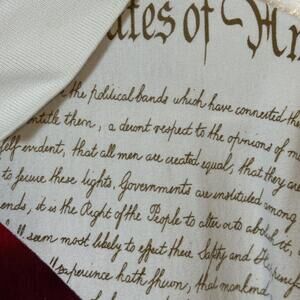 ates of Am
the political bands which have connected the
entitle them, a decent respect to the opinions of m
self evident, that all men are created equal, that they ar
to secure these rights, Governments are instituted among
ends, it is the Right of the People to alter or to abolish it,
ll seem most likely to effect their Safety and Happiness
experience hath shewn, that mankind